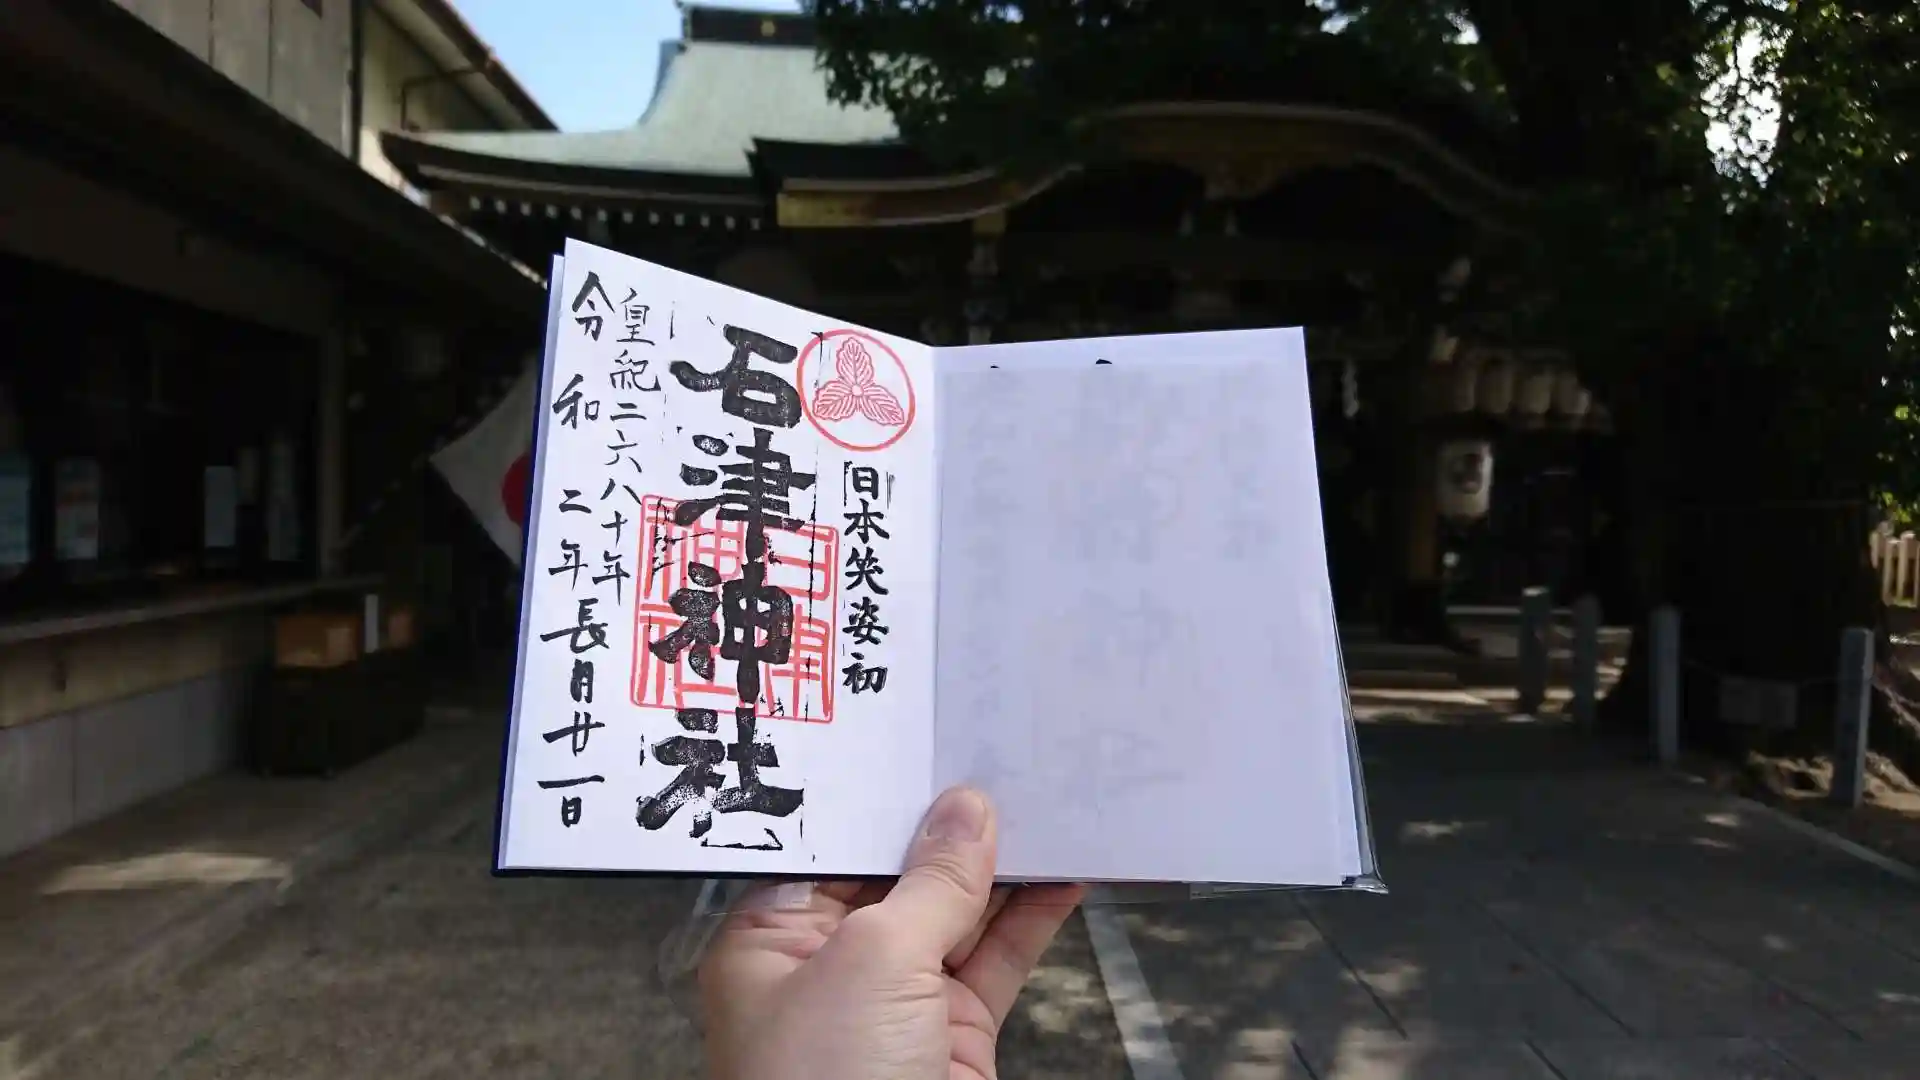 日本笑姿初
石津神社
石津
神社
皇紀二六八十年
令和二年長月廿一日